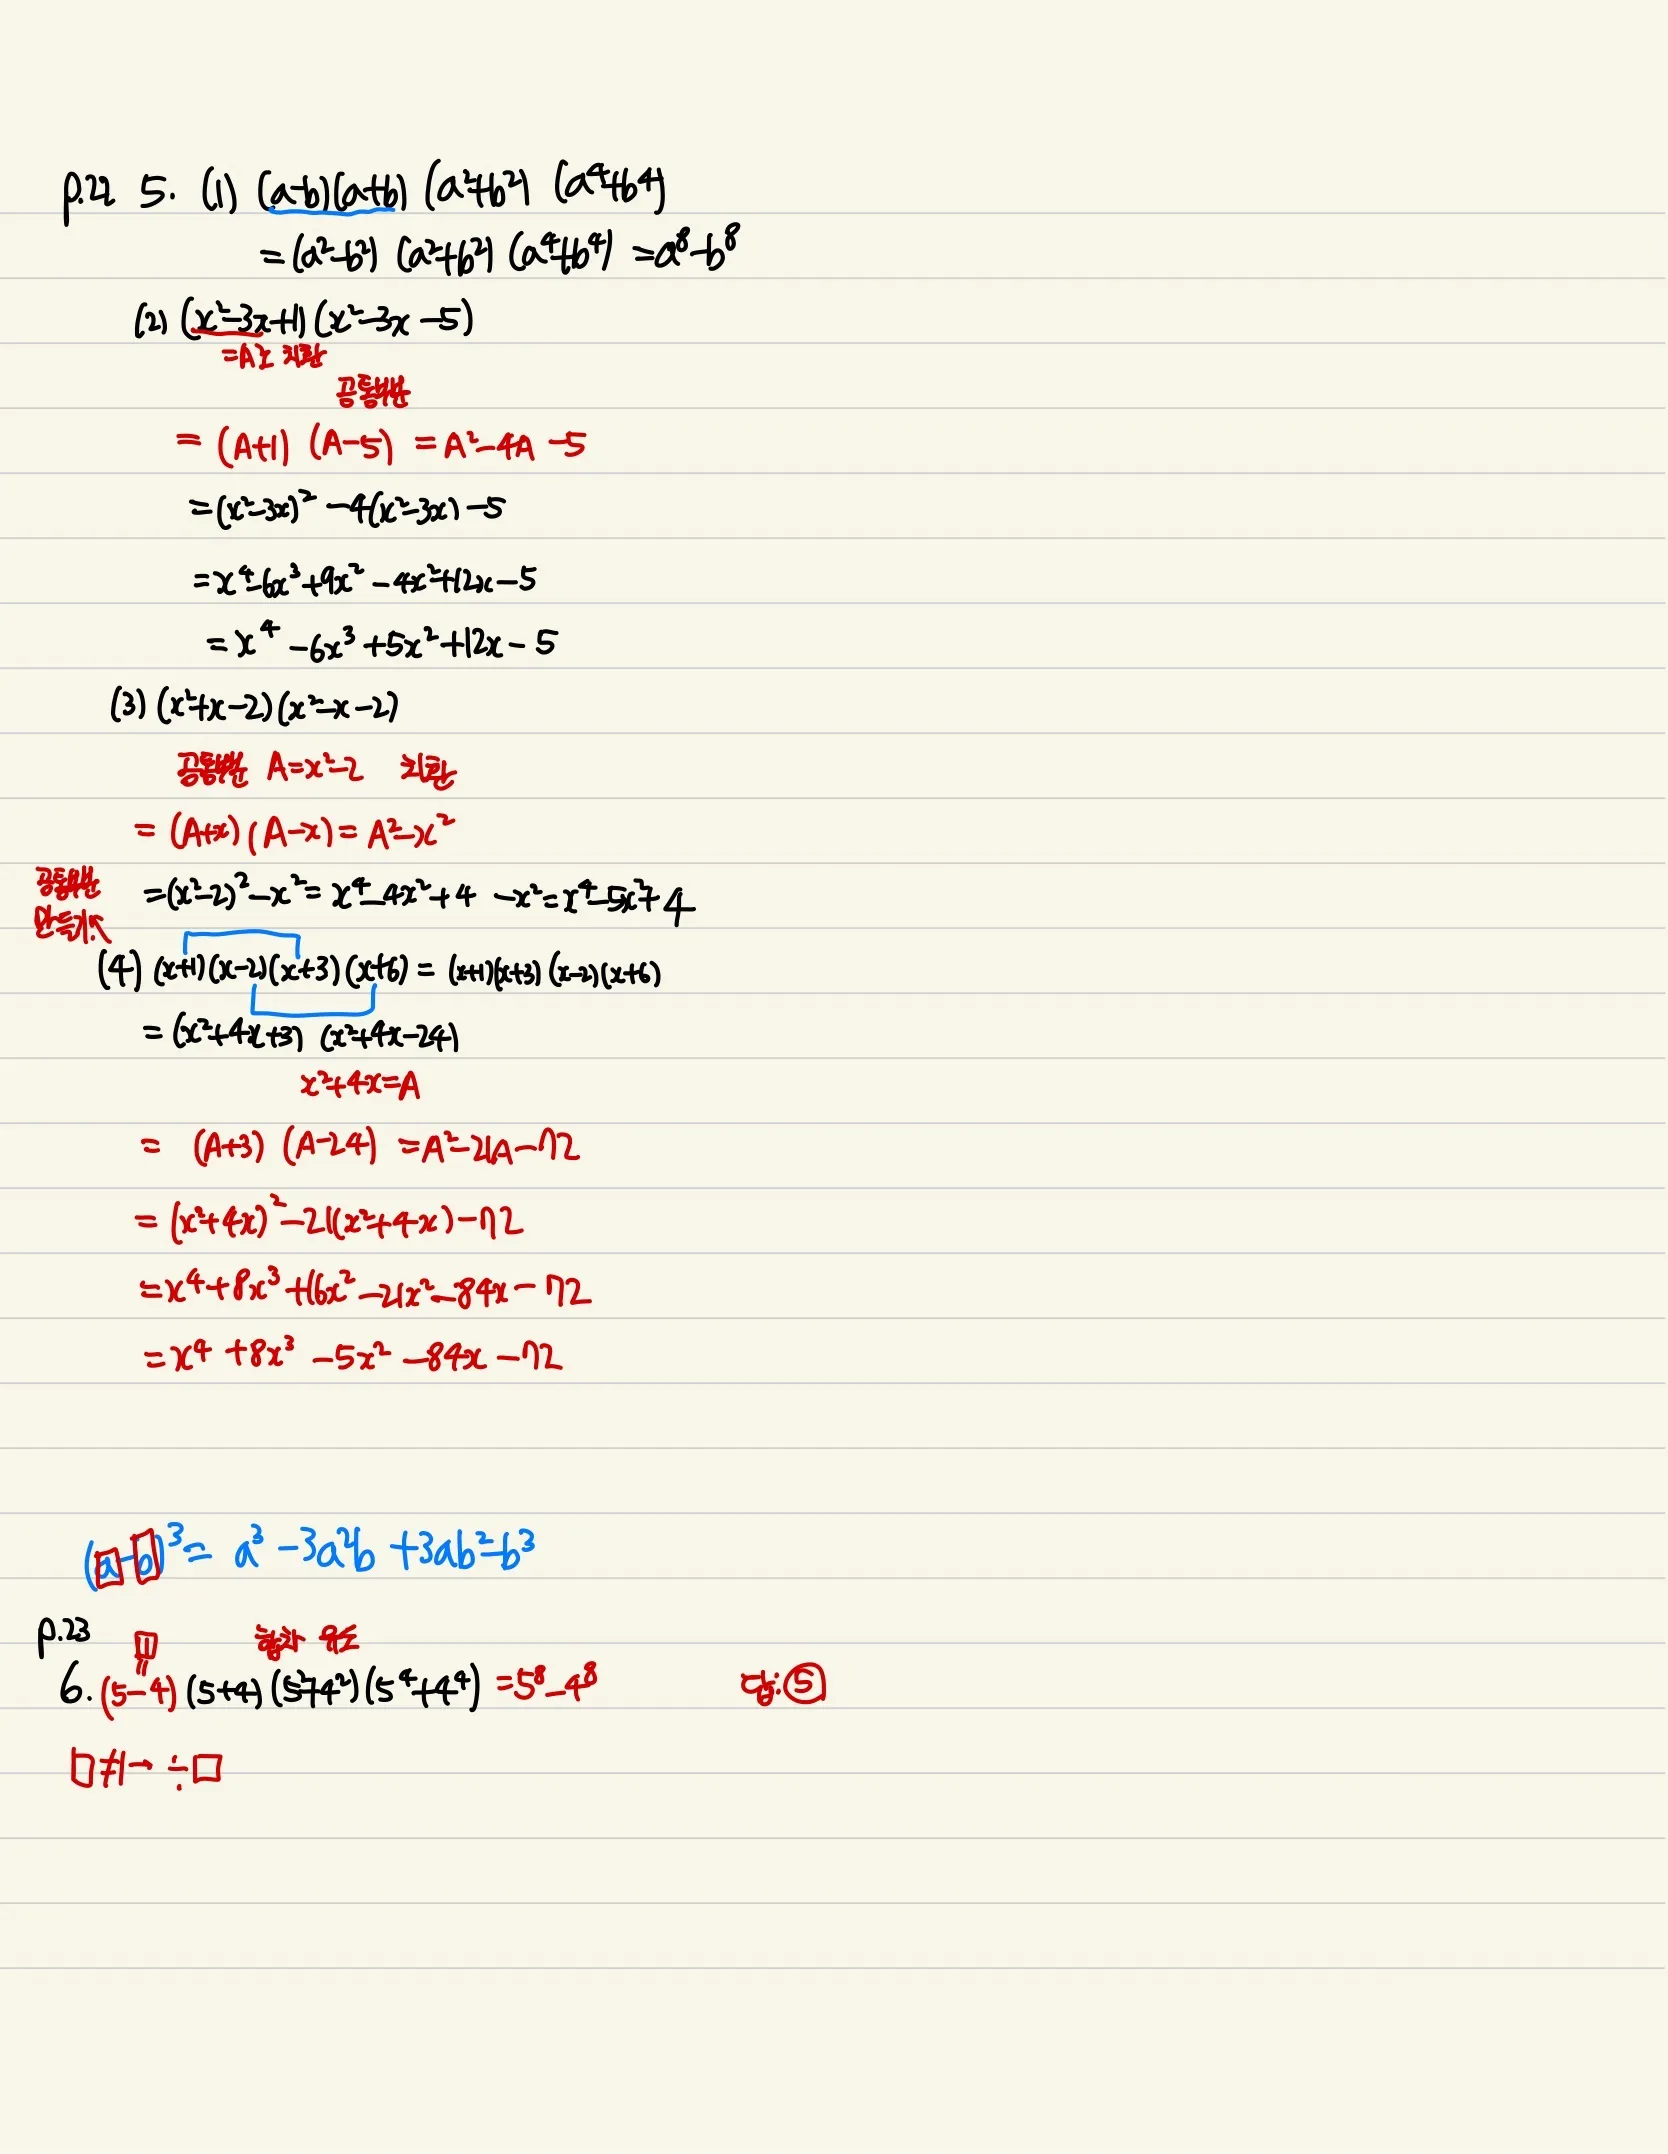 p.22 5. (1) (a-b)(a+b) (a²+b²) (a⁴+b⁴)
= (a²-b²) (a²+b²) (a⁴+b⁴) = a⁸-b⁸
(2) (x²-3x+1)(x²-3x-5)
=A로 치환
공통부분
= (A+1) (A-5) = A²-4A-5
= (x²-3x)² -4(x²-3x) -5
= x⁴-6x³+9x²-4x²+12x-5
= x⁴-6x³+5x²+12x-5
(3) (x²+x-2)(x²-x-2)
공통부분 A=x²-2 치환
= (A+x) (A-x) = A²-x²
= (x²-2)²-x² = x⁴-4x²+4-x² = x⁴-5x²+4
공통부분
만들기
(4) (x+1)(x-2)(x+3)(x+6) = (x+1)(x+3)(x-2)(x+6)
= (x²+4x+3) (x²+4x-24)
x²+4x=A
= (A+3) (A-24) = A²-21A-72
= (x²+4x)²-21(x²+4x)-72
= x⁴+8x³+16x²-21x²-84x-72
= x⁴+8x³-5x²-84x-72
(a-b)³ = a³-3a²b+3ab²-b³
p.23
1 합차 유도
6. (5-4)(5+4)(5²+4²)(5⁴+4⁴) = 5⁸-4⁸ 답:⑤
□≠1→ ÷□